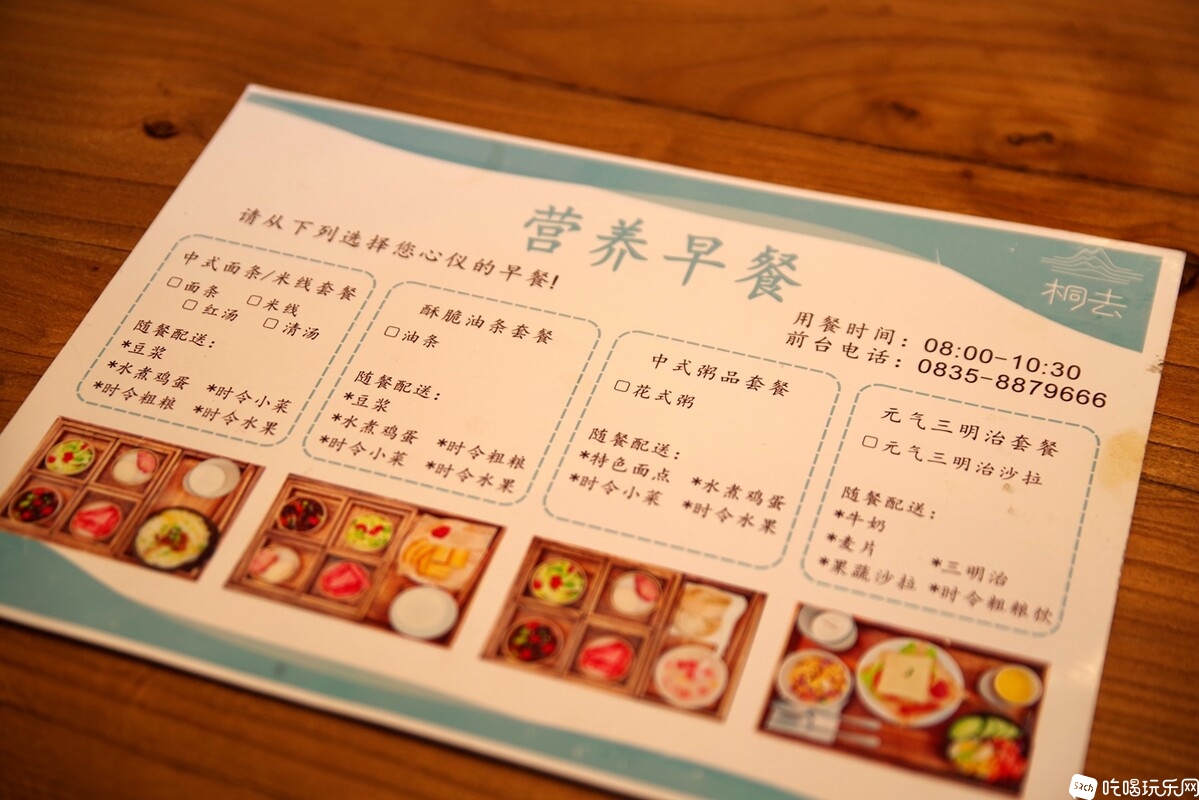 营养早餐
请从下列选择您心仪的早餐!
桐去
用餐时间：08:00-10:30
前台电话：0835-8879666
中式面条/米线套餐
□面条 □米线
□红汤 □清汤
随餐配送：
*豆浆
*水煮鸡蛋 *时令小菜
*时令粗粮 *时令水果
酥脆油条套餐
□油条
随餐配送：
*豆浆
*水煮鸡蛋 *时令粗粮
*时令小菜 *时令水果
中式粥品套餐
□花式粥
随餐配送：
*特色面点 *水煮鸡蛋
*时令小菜 *时令水果
元气三明治套餐
□元气三明治沙拉
随餐配送：
*牛奶
*麦片 *三明治
*果蔬沙拉 *时令粗粮饮
52ch 吃喝玩乐网